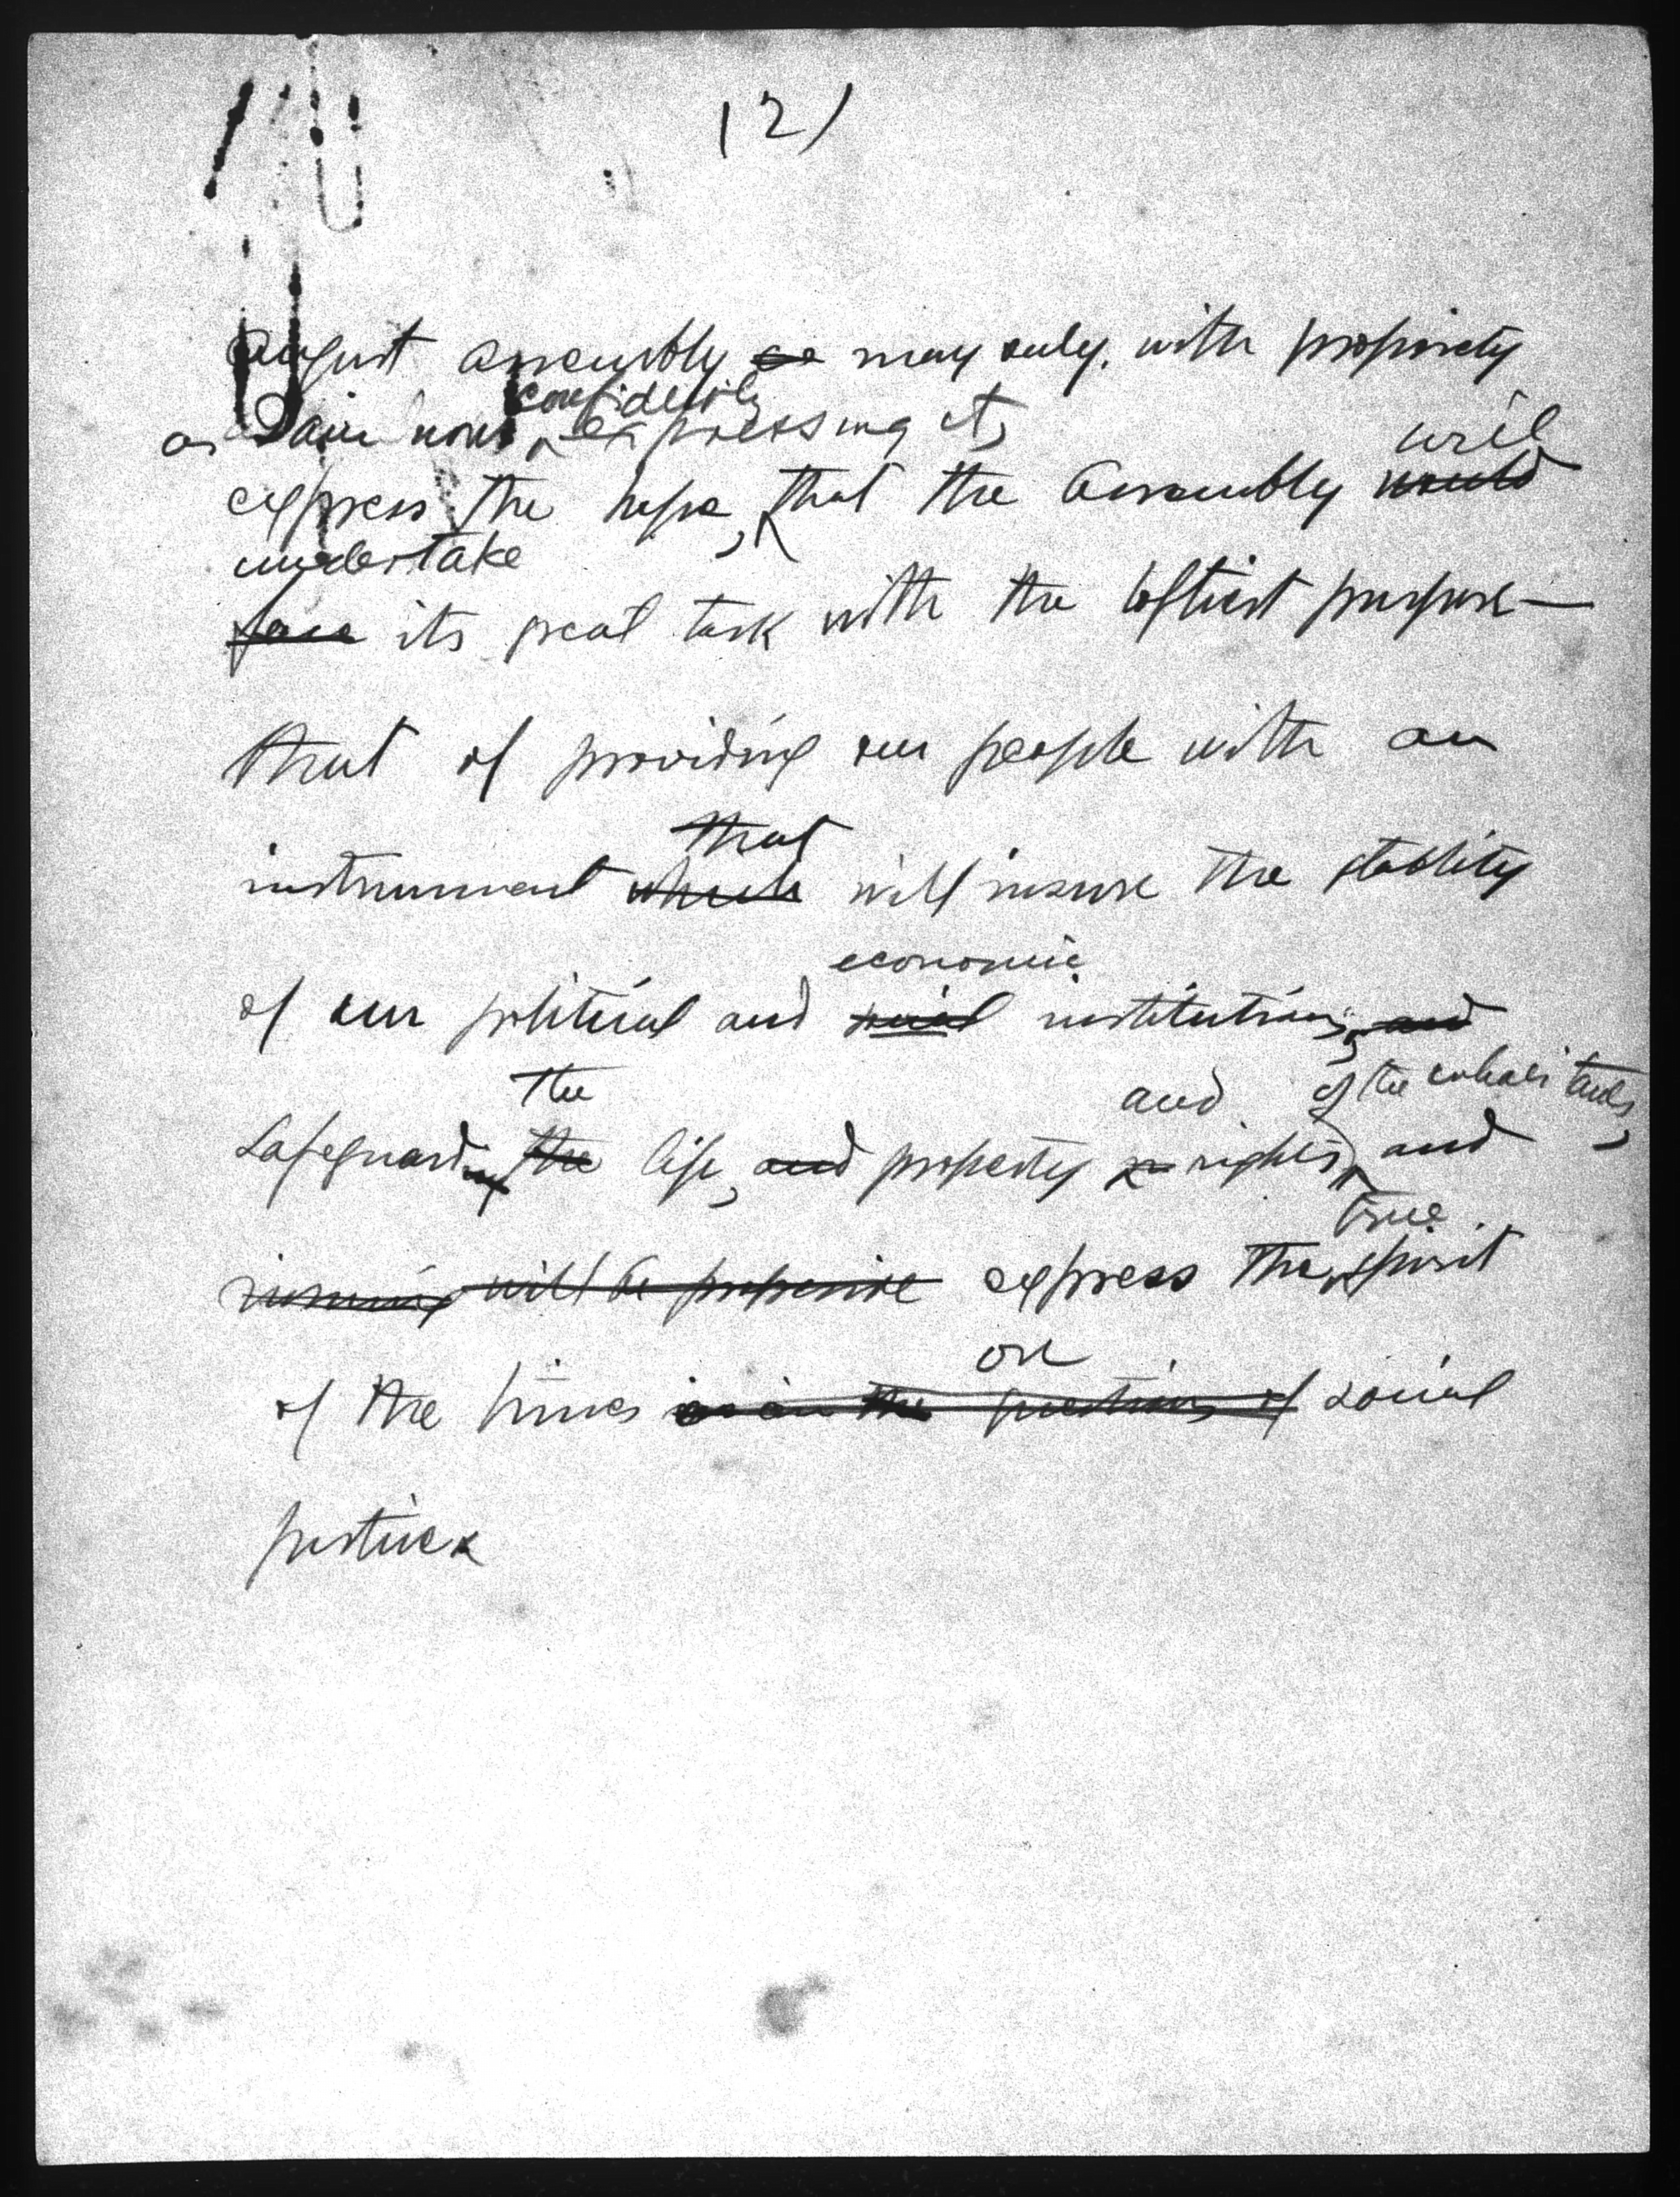 (2)
august assembly may only, with propriety
as I am now confidently expressing it,
will
express the hope, that the Assembly would
undertake
face its great task with the loftiest purpose—
that of providing our people with an
that
instrument which will insure the stability
economic
of our political and social institutions, and
the and of the inhabitants,
safeguarding the life, and property rights, and
true
will be express the spirit
on
of the times as in the questions of social
justice